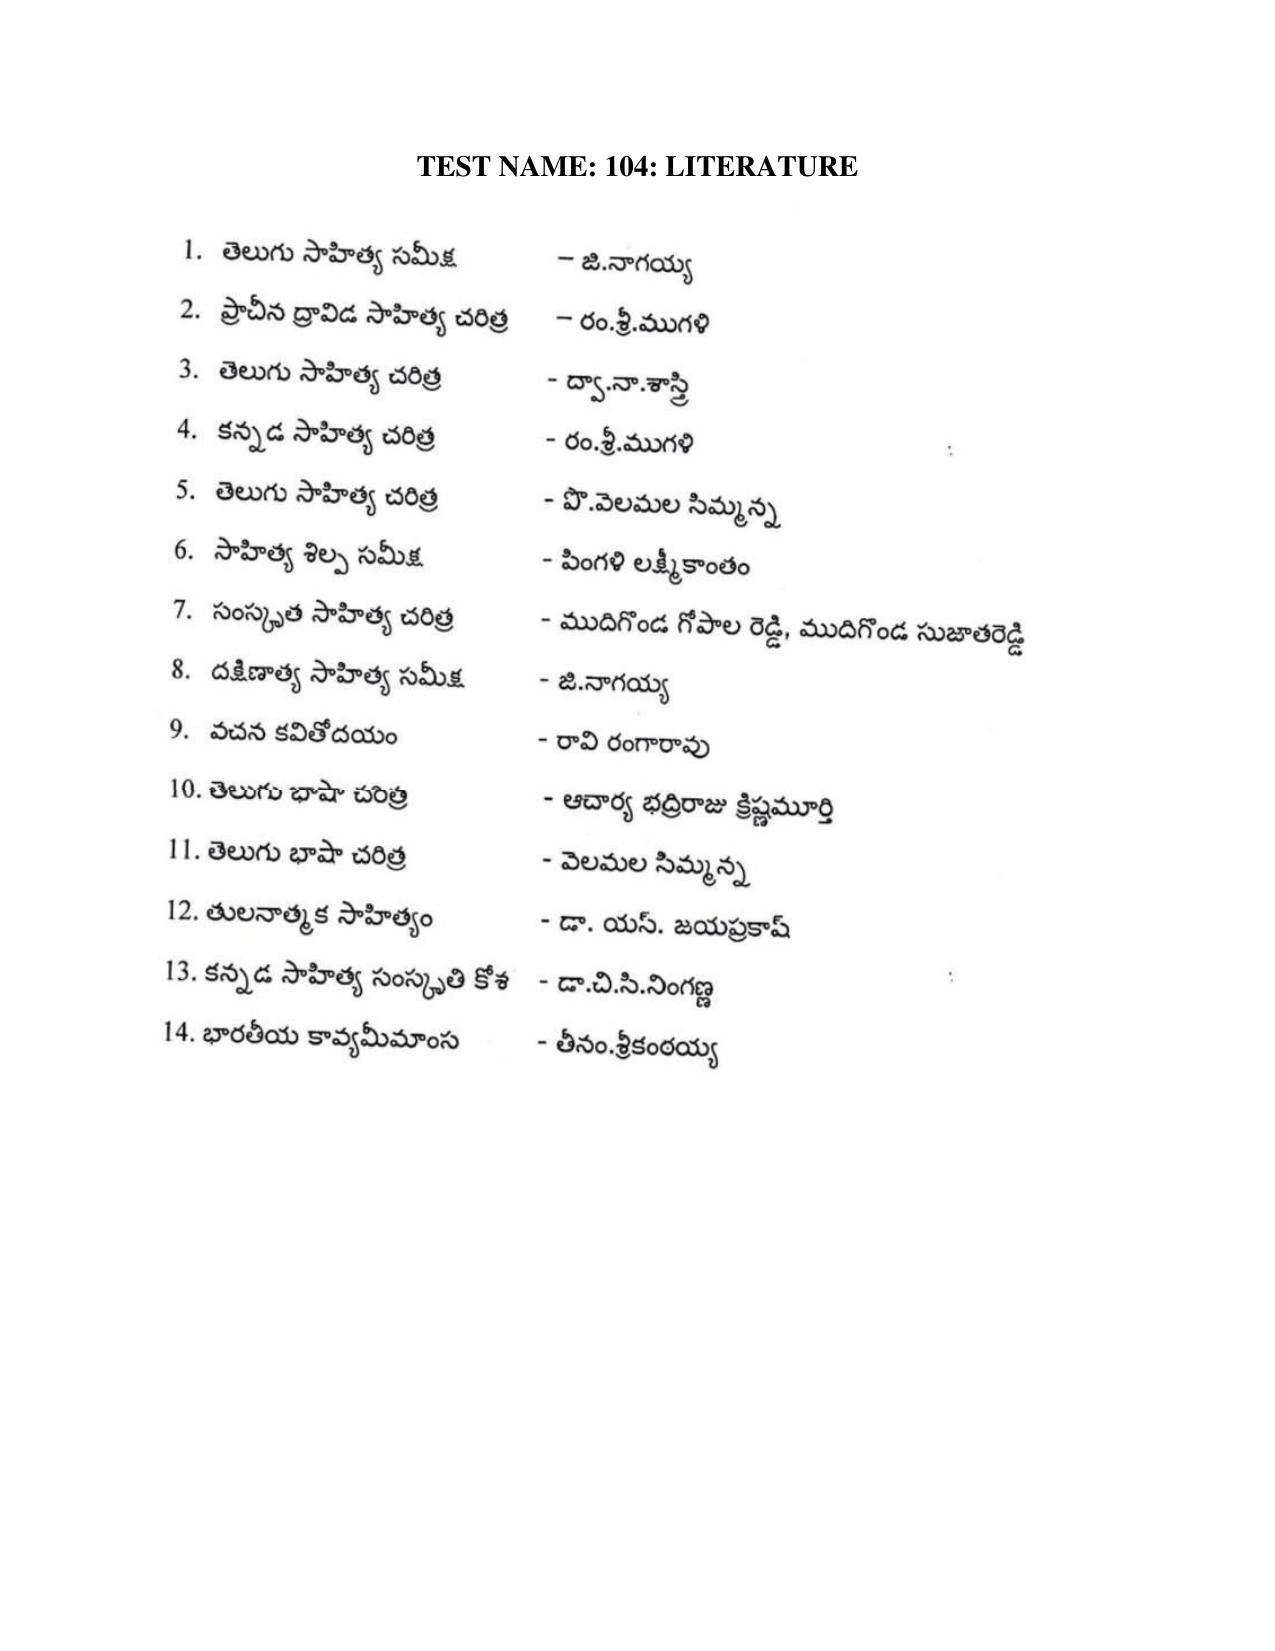 TEST NAME: 104: LITERATURE
1. తెలుగు సాహిత్య సమీక్ష – జి.నాగయ్య
2. ప్రాచీన ద్రావిడ సాహిత్య చరిత్ర – రం.శ్రీ.ముగళి
3. తెలుగు సాహిత్య చరిత్ర - ద్వా.నా.శాస్త్రి
4. కన్నడ సాహిత్య చరిత్ర - రం.శ్రీ.ముగళి
5. తెలుగు సాహిత్య చరిత్ర - ప్రొ.వెలమల సిమ్మన్న
6. సాహిత్య శిల్ప సమీక్ష - పింగళి లక్ష్మీకాంతం
7. సంస్కృత సాహిత్య చరిత్ర - ముదిగొండ గోపాల రెడ్డి, ముదిగొండ సుజాతరెడ్డి
8. దక్షిణాత్య సాహిత్య సమీక్ష - జి.నాగయ్య
9. వచన కవితోదయం - రావి రంగారావు
10. తెలుగు భాషా చరిత్ర - ఆచార్య భద్రిరాజు క్రిష్ణమూర్తి
11. తెలుగు భాషా చరిత్ర - వెలమల సిమ్మన్న
12. తులనాత్మక సాహిత్యం - డా. యస్. జయప్రకాష్
13. కన్నడ సాహిత్య సంస్కృతి కోశ - డా.చి.సి.నింగణ్ణ
14. భారతీయ కావ్యమీమాంస - తీనం.శ్రీకంఠయ్య